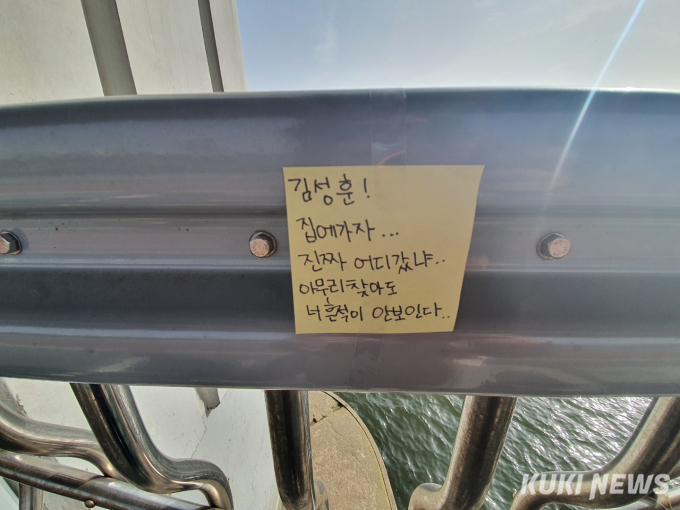 김성훈!
집에가자...
진짜 어디갔냐..
아무리찾아도
너흔적이 안보인다..
KUKI NEWS